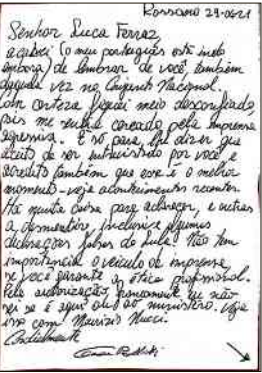 Rossano 29-06-21
Senhor Luca Ferraz,
acabei (o meu português está indo
embora) de lembrar de você, também
daquela vez no Conjunto Nacional.
com certeza fiquei meio desconfiado,
pois me sentia cercado pela imprensa
agressiva. E só para lhe dizer que
aceito de ser entrevistado por você, e
acredito também que esse é o melhor
momento - veja acontecimentos recentes.
Há muita coisa para esclarecer, e outras
a desmentir, inclusive algumas
declarações falsas do Lula. Não tem
importância o veículo de imprensa,
se você garante a ética profissional.
Pela autorização, francamente eu não
sei se é aqui ou ao ministério. Veja
isso com Maurizio Nucci.
Cordialmente